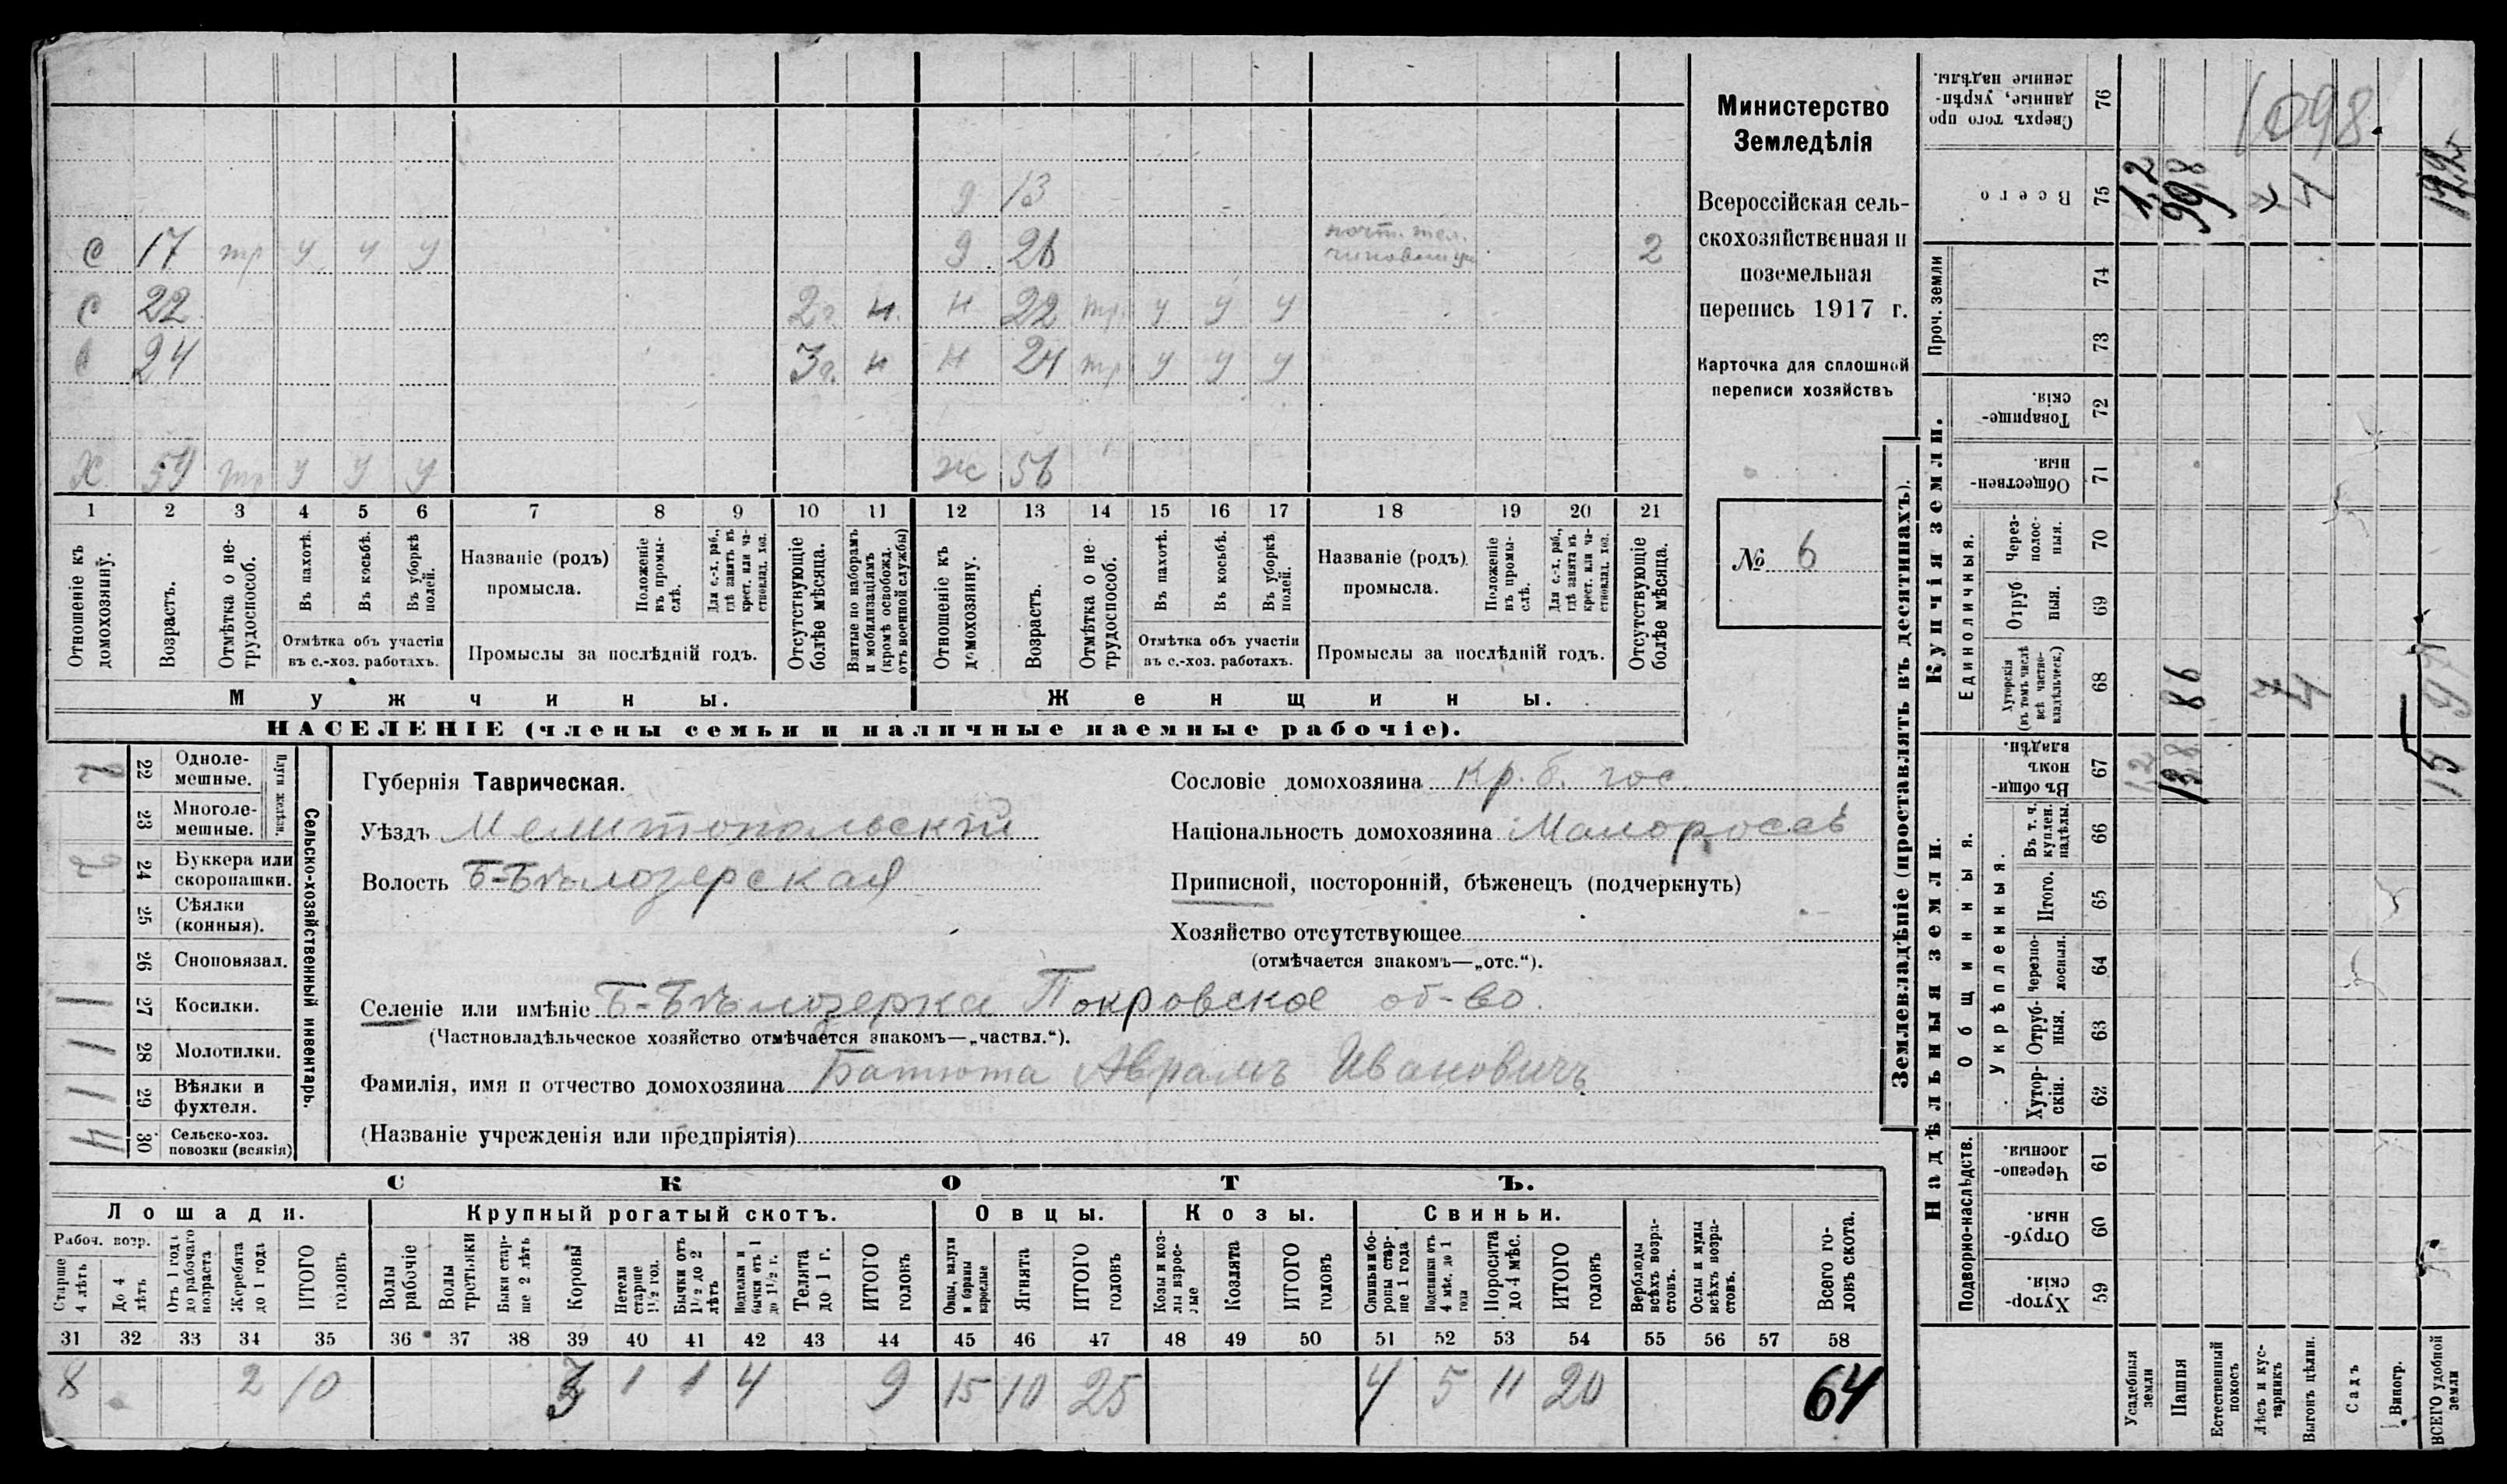 д 13
с 17 тр у у у д 26 почт. тел. 2
с 22 2 г. н. н 22 тр. у у у
с 24 3 г. н н 24 тр у у у
х 59 тр у у у ж 56
1 2 3 4 5 6 7 8 9 10 11 12 13 14 15 16 17 18 19 20 21
Отношеніе къ домохозяину.
Возрастъ.
Отмѣтка о не-трудоспособ.
Въ пахотѣ.
Въ косьбѣ.
Въ уборкѣ полей.
Отмѣтка объ участіи
въ с.-хоз. работахъ.
Названіе (родъ)
промысла.
Положеніе въ промы-слѣ.
Для с.-х. раб., гдѣ занятъ въ крест. или ча-стновлад. хоз.
Промыслы за послѣдній годъ.
Отсутствующіе болѣе мѣсяца.
Взятые по наборамъ и мобилизаціямъ (кромѣ освобожд. отъ военной службы)
Отношеніе къ домохозяину.
Возрастъ.
Отмѣтка о не-трудоспособ.
Въ пахотѣ.
Въ косьбѣ.
Въ уборкѣ полей.
Отмѣтка объ участіи
въ с.-хоз. работахъ.
Названіе (родъ)
промысла.
Положеніе въ промы-слѣ.
Для с.-х. раб., гдѣ занята въ крест. или ча-стновлад. хоз.
Промыслы за послѣдній годъ.
Отсутствующіе болѣе мѣсяца.
Мужчины.
Женщины.
НАСЕЛЕНІЕ (члены семьи и наличные наемные рабочіе).
Министерство
Земледѣлія
Всероссійская сель-
скохозяйственная и
поземельная
перепись 1917 г.
Карточка для сплошной
переписи хозяйствъ
№ 6
Сельско-хозяйственный инвентарь.
Плуги желѣзн.
2 22 Однолемешные.
23 Многолемешные.
2 24 Буккера или скоропашки.
25 Сѣялки (конныя).
26 Сноповязал.
1 27 Косилки.
1 28 Молотилки.
1 29 Вѣялки и фухтеля.
4 30 Сельско-хоз. повозки (всякія)
Губернія Таврическая.
Уѣздъ Мелитопольскій
Волость Б-Бѣлозерская
Сословіе домохозяина кр. б. гос.
Національность домохозяина Малороссъ
Приписной, посторонній, бѣженецъ (подчеркнуть)
Хозяйство отсутствующее
(отмѣчается знакомъ—„отс.“).
Селеніе или имѣніе Б-Бѣлозерка Покровское об-во.
(Частновладѣльческое хозяйство отмѣчается знакомъ—„частвл.“).
Фамилія, имя и отчество домохозяина Батюта Аврамъ Ивановичъ
(Названіе учрежденія или предпріятія)
СКОТЪ.
Лошади. Крупный рогатый скотъ. Овцы. Козы. Свиньи.
Рабоч. возр.
Старше 4 лѣтъ
До 4 лѣтъ
Отъ 1 года до рабочаго возраста
Жеребята до 1 года
ИТОГО головъ
Волы рабочіе
Волы третьяки
Быки стар-ше 2 лѣтъ
Коровы
Нетели старше 1½ год.
Бычки отъ 1½ до 2 лѣтъ
Подтелки и бычки отъ 1 до 1½ г.
Телята до 1 г.
ИТОГО головъ
Овцы, валухи и бараны взрослые
Ягнята
ИТОГО головъ
Козы и коз-лы взрос-лые
Козлята
ИТОГО головъ
Свиньи и бо-ровы стар-ше 1 года
Подсвинки отъ 4 мѣс. до 1 года
Поросята до 4 мѣс.
ИТОГО головъ
Верблюды всѣхъ возра-стовъ.
Ослы и мулы всѣхъ возра-стовъ.
Всего го-ловъ скота.
31 32 33 34 35 36 37 38 39 40 41 42 43 44 45 46 47 48 49 50 51 52 53 54 55 56 57 58
8 2 10 3 1 1 4 9 15 10 25 4 5 11 20 64
Землевладѣніе (проставлять въ десятинахъ).
Надѣльныя земли.
Купчія земли.
Проч. земли
Подворно-наслѣдств.
Общинныя.
Укрѣпленныя.
Единоличныя.
76 Сверхъ того про данные, укрѣп-ленные надѣлы.
75 Всего
74
73
72 Товарище-скія.
71 Обществен-ныя.
70 Через-полос-ныя.
69 Отруб ныя.
68 Хуторскія (въ томъ числѣ всѣ частно-владѣльческ.)
67 Въ общин-номъ владѣн.
66 Въ т. ч. куплен. надѣлы.
65 Итого.
64 Черезпо-лосныя.
63 Отруб-ныя.
62 Хутор-скія.
61 Черезпо-лосныя.
60 Отруб-ныя.
59 Хутор-скія.
1098.
1,2
99,8
4
86
4
1,2
13,8
15
Усадебныя земли
Пашня
Естественный покосъ
Лѣсъ и кус-тарникъ
Выгонъ цѣлин.
Садъ
Виногр.
ВСЕГО удобной земли